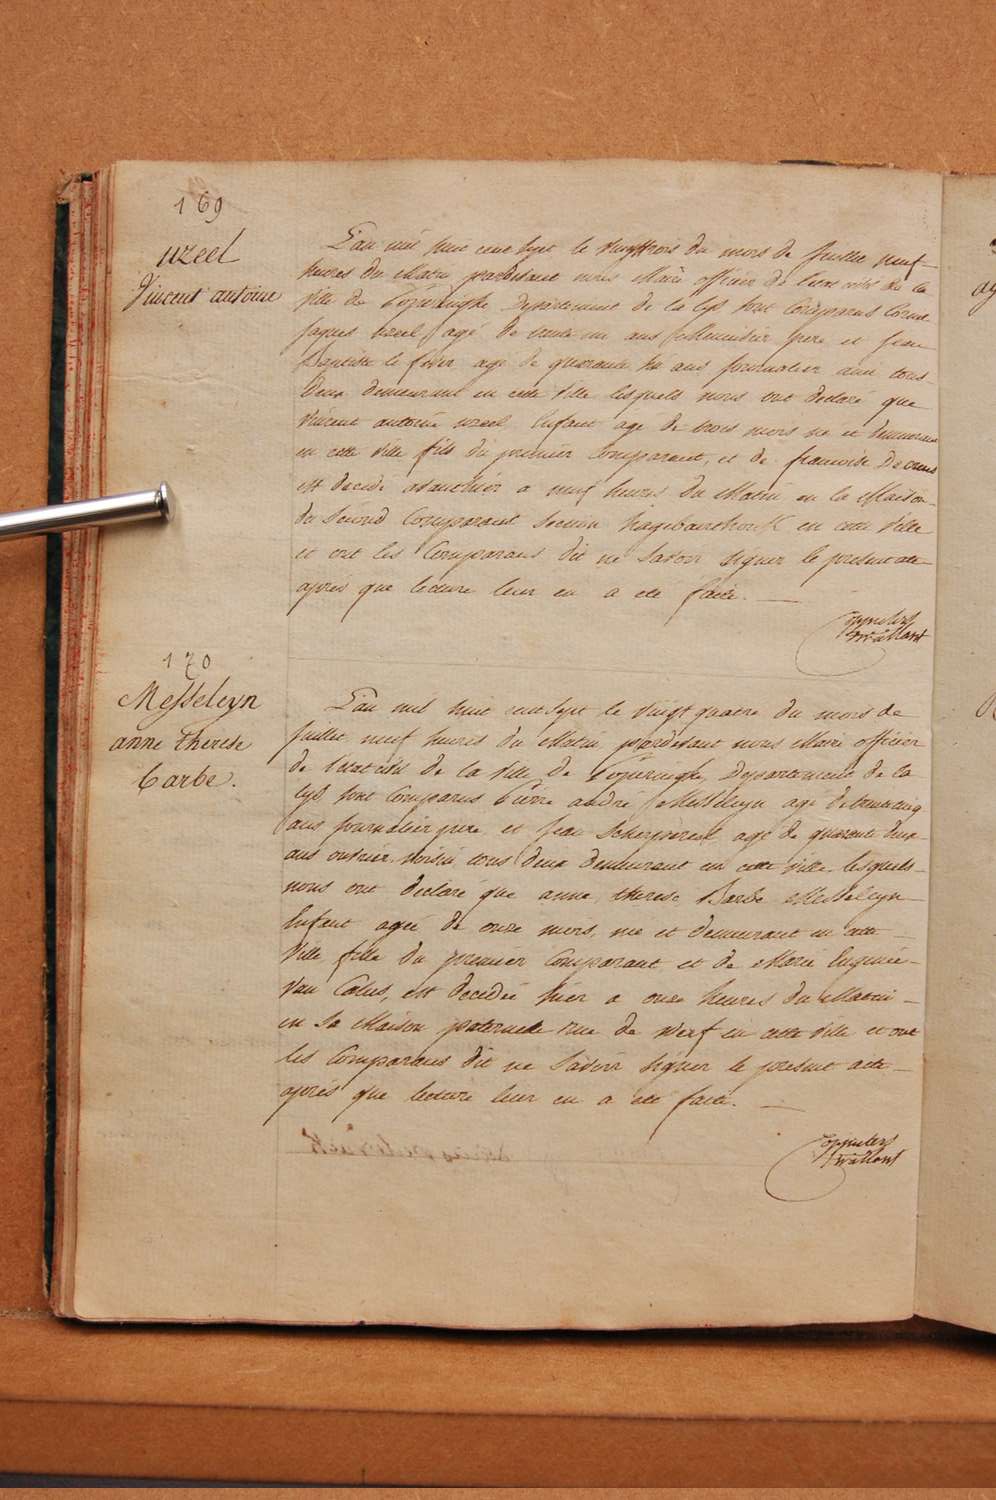 169
uzeel
Vincent antoine
L'an mil huit cent sept le vingttrois du mois de Juillet neuf
heures du Matin pardevant nous Maire officier de l'etat civil de la
ville de Poperinghe Departement de la Lys sont Comparus
Jaques uzeel agé de trente un ans Menuisier pere et Jean
Baptiste le fever agé de quarante six ans Journalier ami tous
deux demeurant en cette Ville lesquels nous ont declaré que
Vincent antoine uzeel Enfant agé de trois mois né et demeurant
en cette Ville fils du premier Comparant, et de francoise De
est decedé avanthier a neuf heures du Matin en la Maison
du Second Comparant Section en cette Ville
et ont les Comparans dit ne Savoir signer le present acte
après que lecture leur en a ete faite.
170
Messeleyn
anne therese
barbe.
L'an mil huit cent Sept le vingt quatre du mois de
Juillet neuf heures du Matin pardevant nous Maire officier
de l'etat civil de la Ville de Poperinghe, Departement de la
Lys sont Comparus Pierre andré Messeleyn agé de trente cinq
ans Journalier pere et Jean agé de quarante deux
ans ouvrier Voisin tous deux demeurant en cette ville, lesquels
nous ont declaré que anne therese Barbe Messeleyn
Enfant agée de onze mois, née et demeurant en cette
Ville fille du premier Comparant et de Marie Eugenie
Van Calus, est decedée hier a onze heures du Matin
en sa Maison paternele rue de Werf en cette Ville et ont
les Comparans dit ne Savoir signer le present acte
après que lecture leur en a été faite.